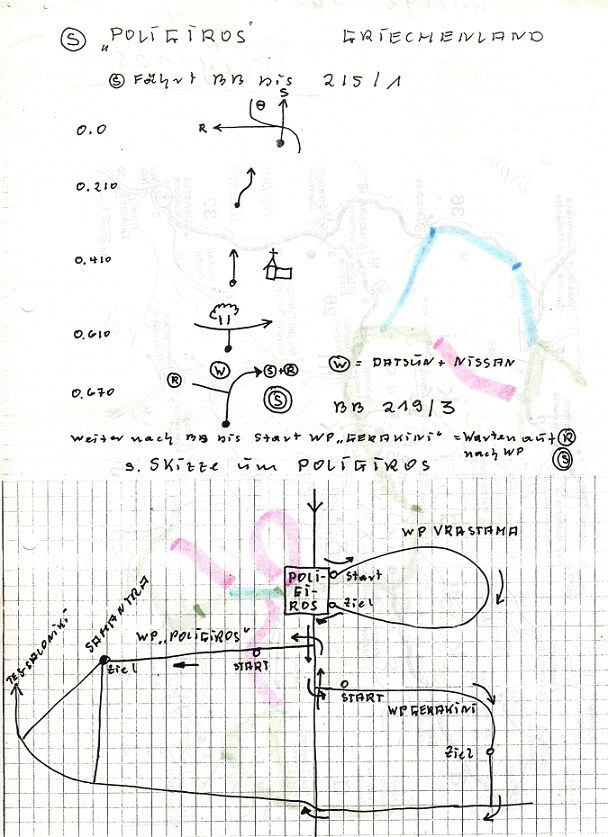 Ⓢ „POLIGIROS" GRIECHENLAND
Ⓢ Fährt BB bis 215/1
0.0
R
Θ
S
0.210
0.410
0.610
0.670
Ⓡ
Ⓦ
Ⓢ+Ⓡ
Ⓢ
Ⓦ = DATSUN + NISSAN
BB 219/3
weiter nach BB bis Start WP „GERAKINI" = Warten auf Ⓡ
nach WP Ⓢ
s. Skizze um POLIGIROS
WP VRASTAMA
POLI-
GI-
ROS
Start
Ziel
TESSALONIKI
SAMANTRA
WP „POLIGIROS"
Ziel
START
START
WP GERAKINI
Ziel